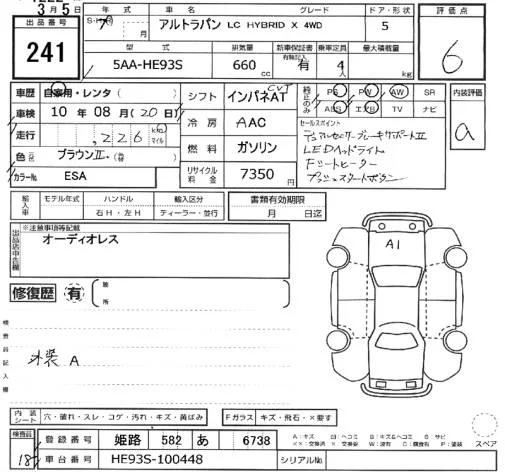 3月5日
出品番号
241
年式
車名
グレード
ドア・形状
評価点
7 月
アルトラパン LC HYBRID X 4WD
5
6
型式
排気量
新車保証書
有無記入
乗車定員
最大積載量
5AA-HE93S
660 cc
有
4 人
kg
車歴
自家用・レンタ( )
車検
10 年 08 月( 20 日)
走行
,226 km マイル
色
ブラウンⅡ (
カラーNo
ESA
シフト
インパネAT
CVT
冷房
AAC
燃料
ガソリン
リサイクル料金
7350 円
純正のみ
PS PW AW SR
ABS エアB TV ナビ
セールスポイント
デュアルセンサーブレーキサポートⅡ
LEDヘッドライト
Fシートヒーター
プッシュスタートボタン
内装評価
a
輸入車
モデル年式
ハンドル
右H・左H
輸入区分
ディーラー・並行
書類有効期限
月 日迄
出品店申告欄
※注意事項等記載
オーディオレス
修復歴
有
箇所
検査員記入欄
外装 A
A1
内装シート
穴・破れ・スレ・コゲ・汚れ・キズ・黄ばみ
Fガラス
キズ・飛石・×要す
スペア
検査員
18
登録番号
姫路 582 あ 6738
車台番号
HE93S-100448
シリアルNo.
A：キズ
U：ヘコミ
B：キズ&ヘコミ
S：サビ
××：交換済
×：交換要
W：波有
C：腐食有
P：塗装